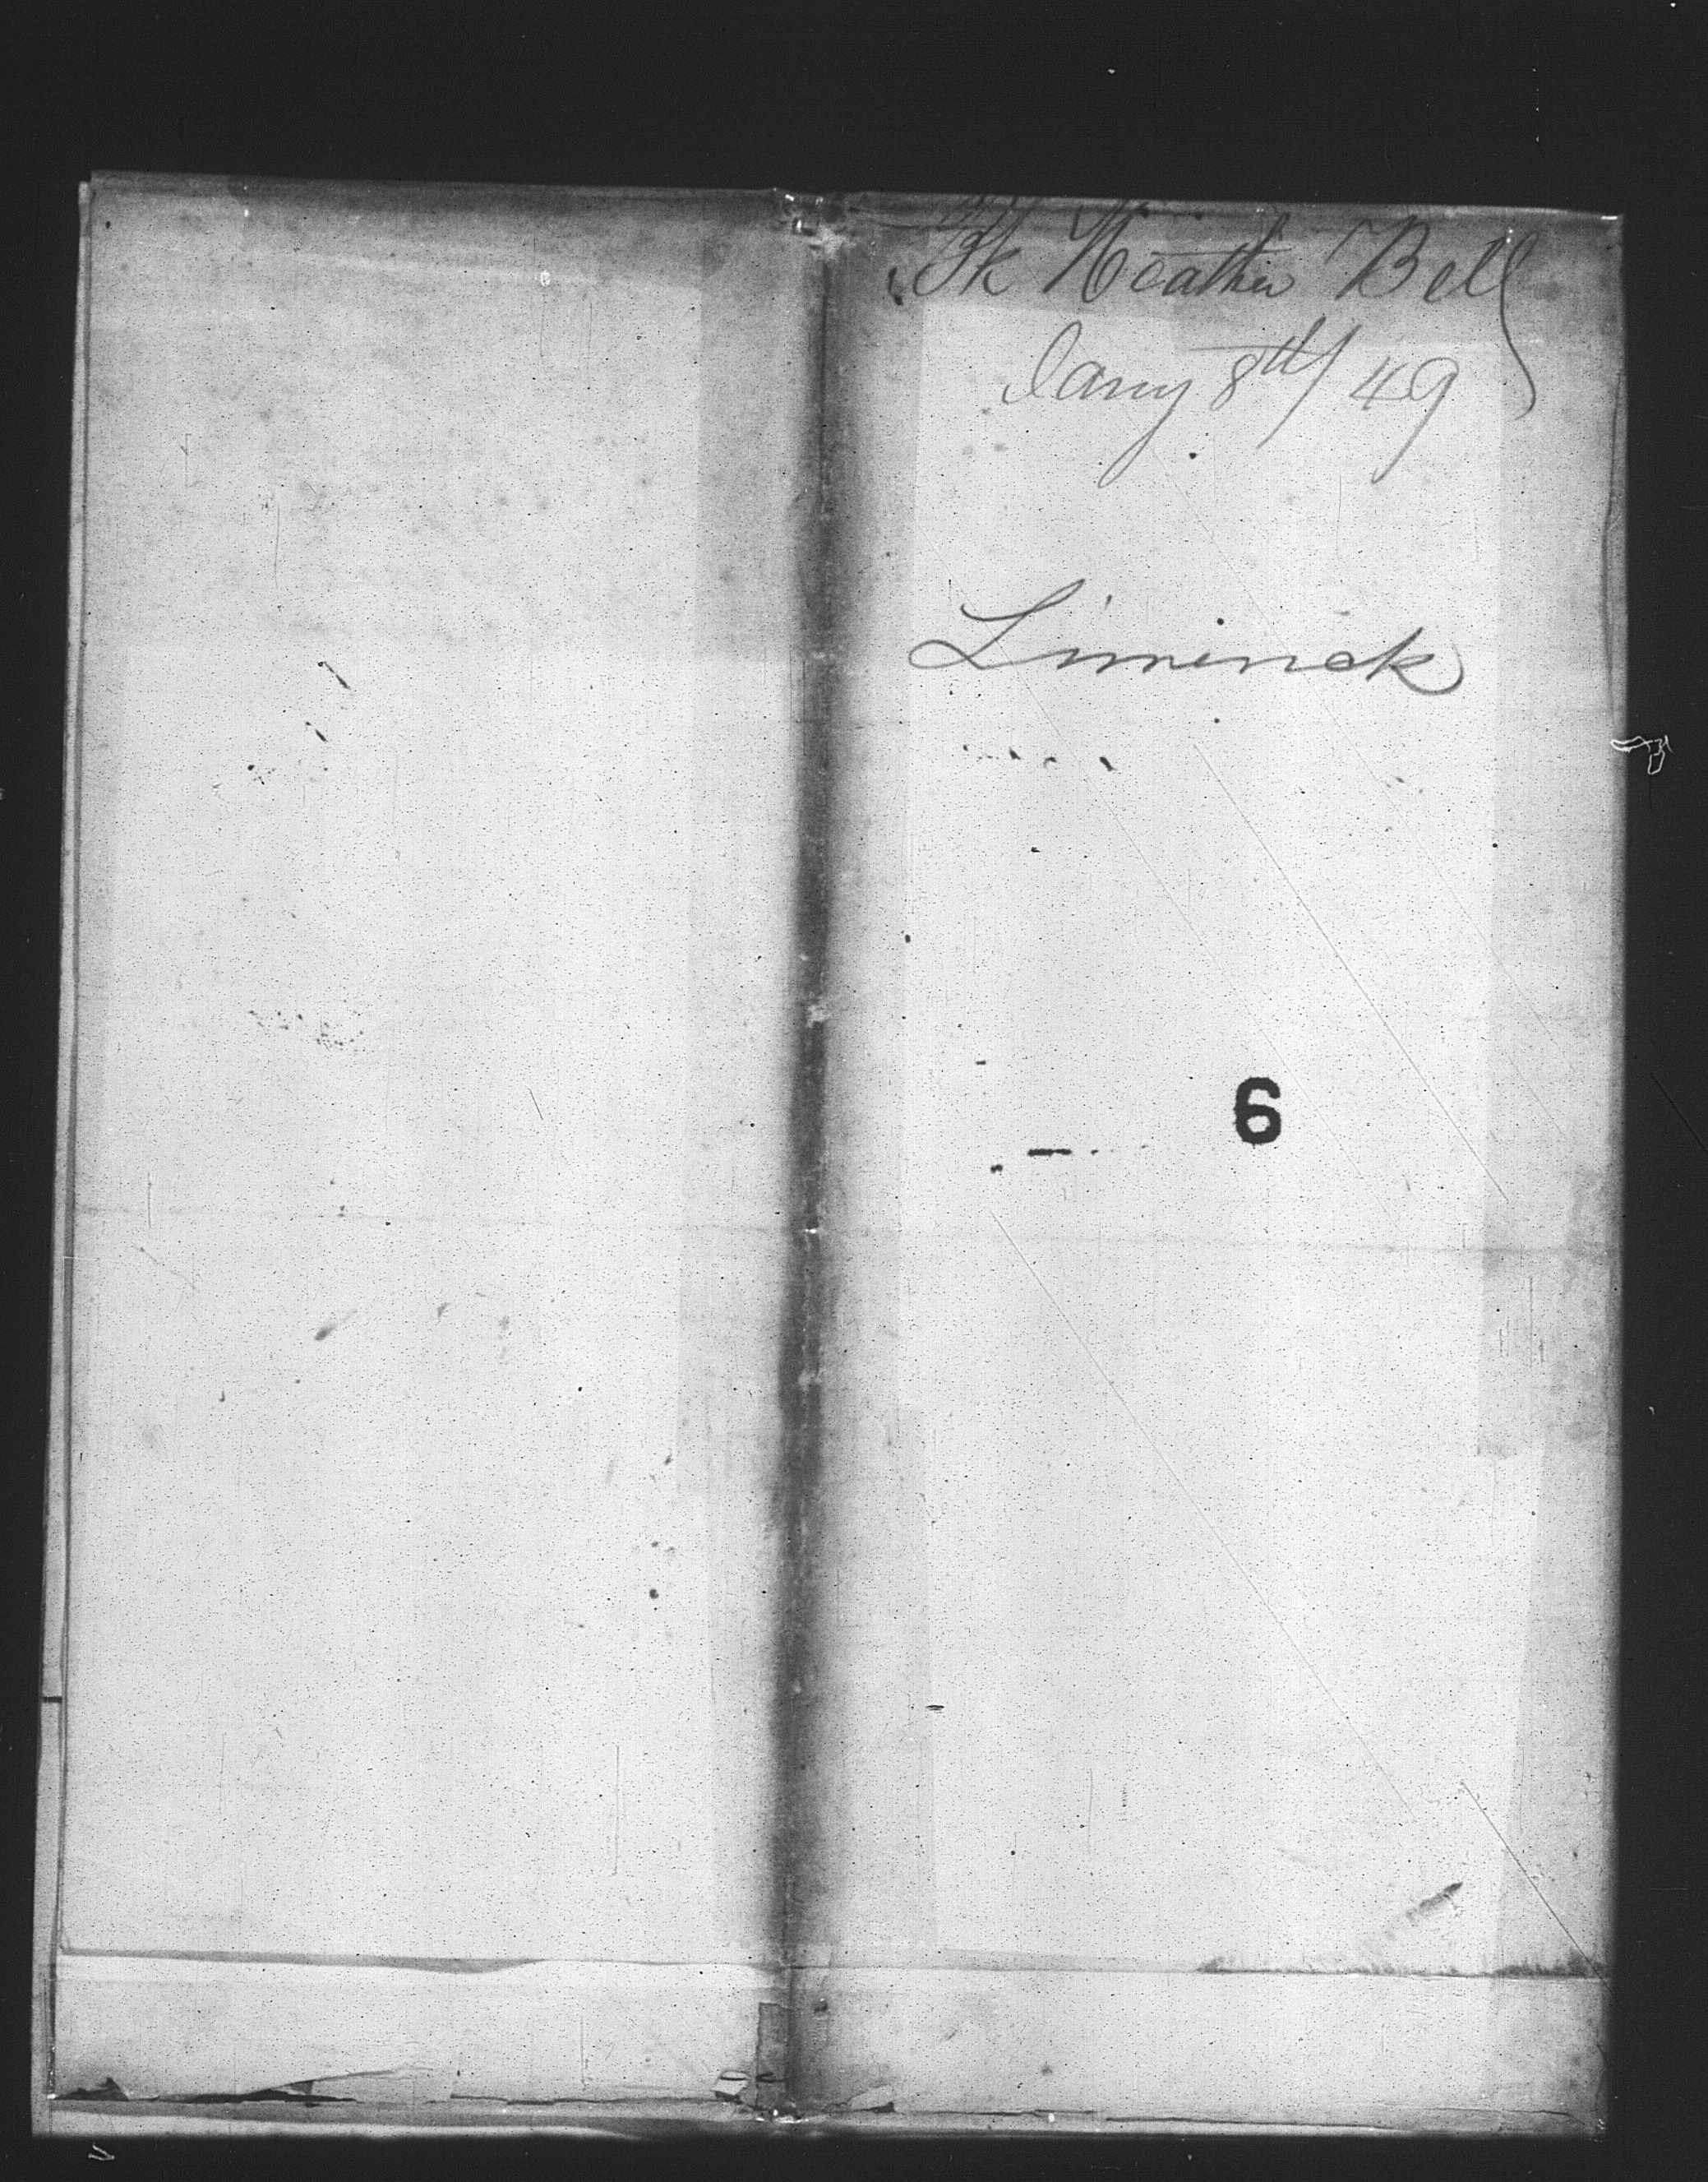 Bk Heather Bell
Jany 8th/49
Limerick
6